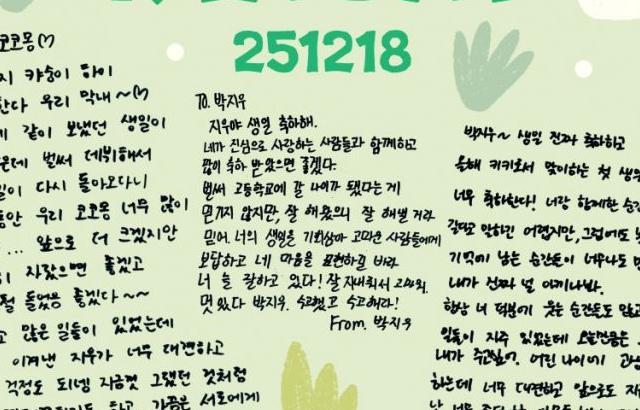 251218
코코몽♡
캬숑이 하이
한다 우리 막내~♡
같이 보냈던 생일이
벌써 데뷔해서
다시 돌아오다니
우리 코코몽 너무 많이
... 앞으로 더 크겠지만
자랐으면 좋겠고
들었음 좋겠다~~
많은 일들이 있었는데
이겨낸 지우가 너무 대견하고
걱정도 되넹 지금껏 그랬던 것처럼
하고 가끔은 서로에게
To. 박지우
지우야 생일 축하해.
네가 진심으로 사랑하는 사람들과 함께하고
많이 축하 받았으면 좋겠다.
벌써 고등학교에 갈 나이가 됐다는 게
믿기지 않지만, 잘 해왔으니 잘 해낼 거라
믿어. 너의 생일을 기회삼아 고마운 사람들에게
보답하고 네 마음을 표현하길 바라
너 늘 잘하고 있다! 잘 자내줘서 고마워.
멋있다 박지우. 수고했고 수고해라!
From. 박지우
박지우~ 생일 진짜 축하하고
올해 키키로서 맞이하는 첫 생
너무 축하한다! 너랑 함께한 순간
말하긴 어렵지만, 그럼에도
기억에 남는 순간들이 너무나도
내가 진짜 널 아끼나봐.
항상 너 덕분에 웃는 순간도 많고
일들이 자주 있었는데 오늘만큼은
내가 주고싶어. 어린 나이에
하는데 너무 대견하고 앞으로도